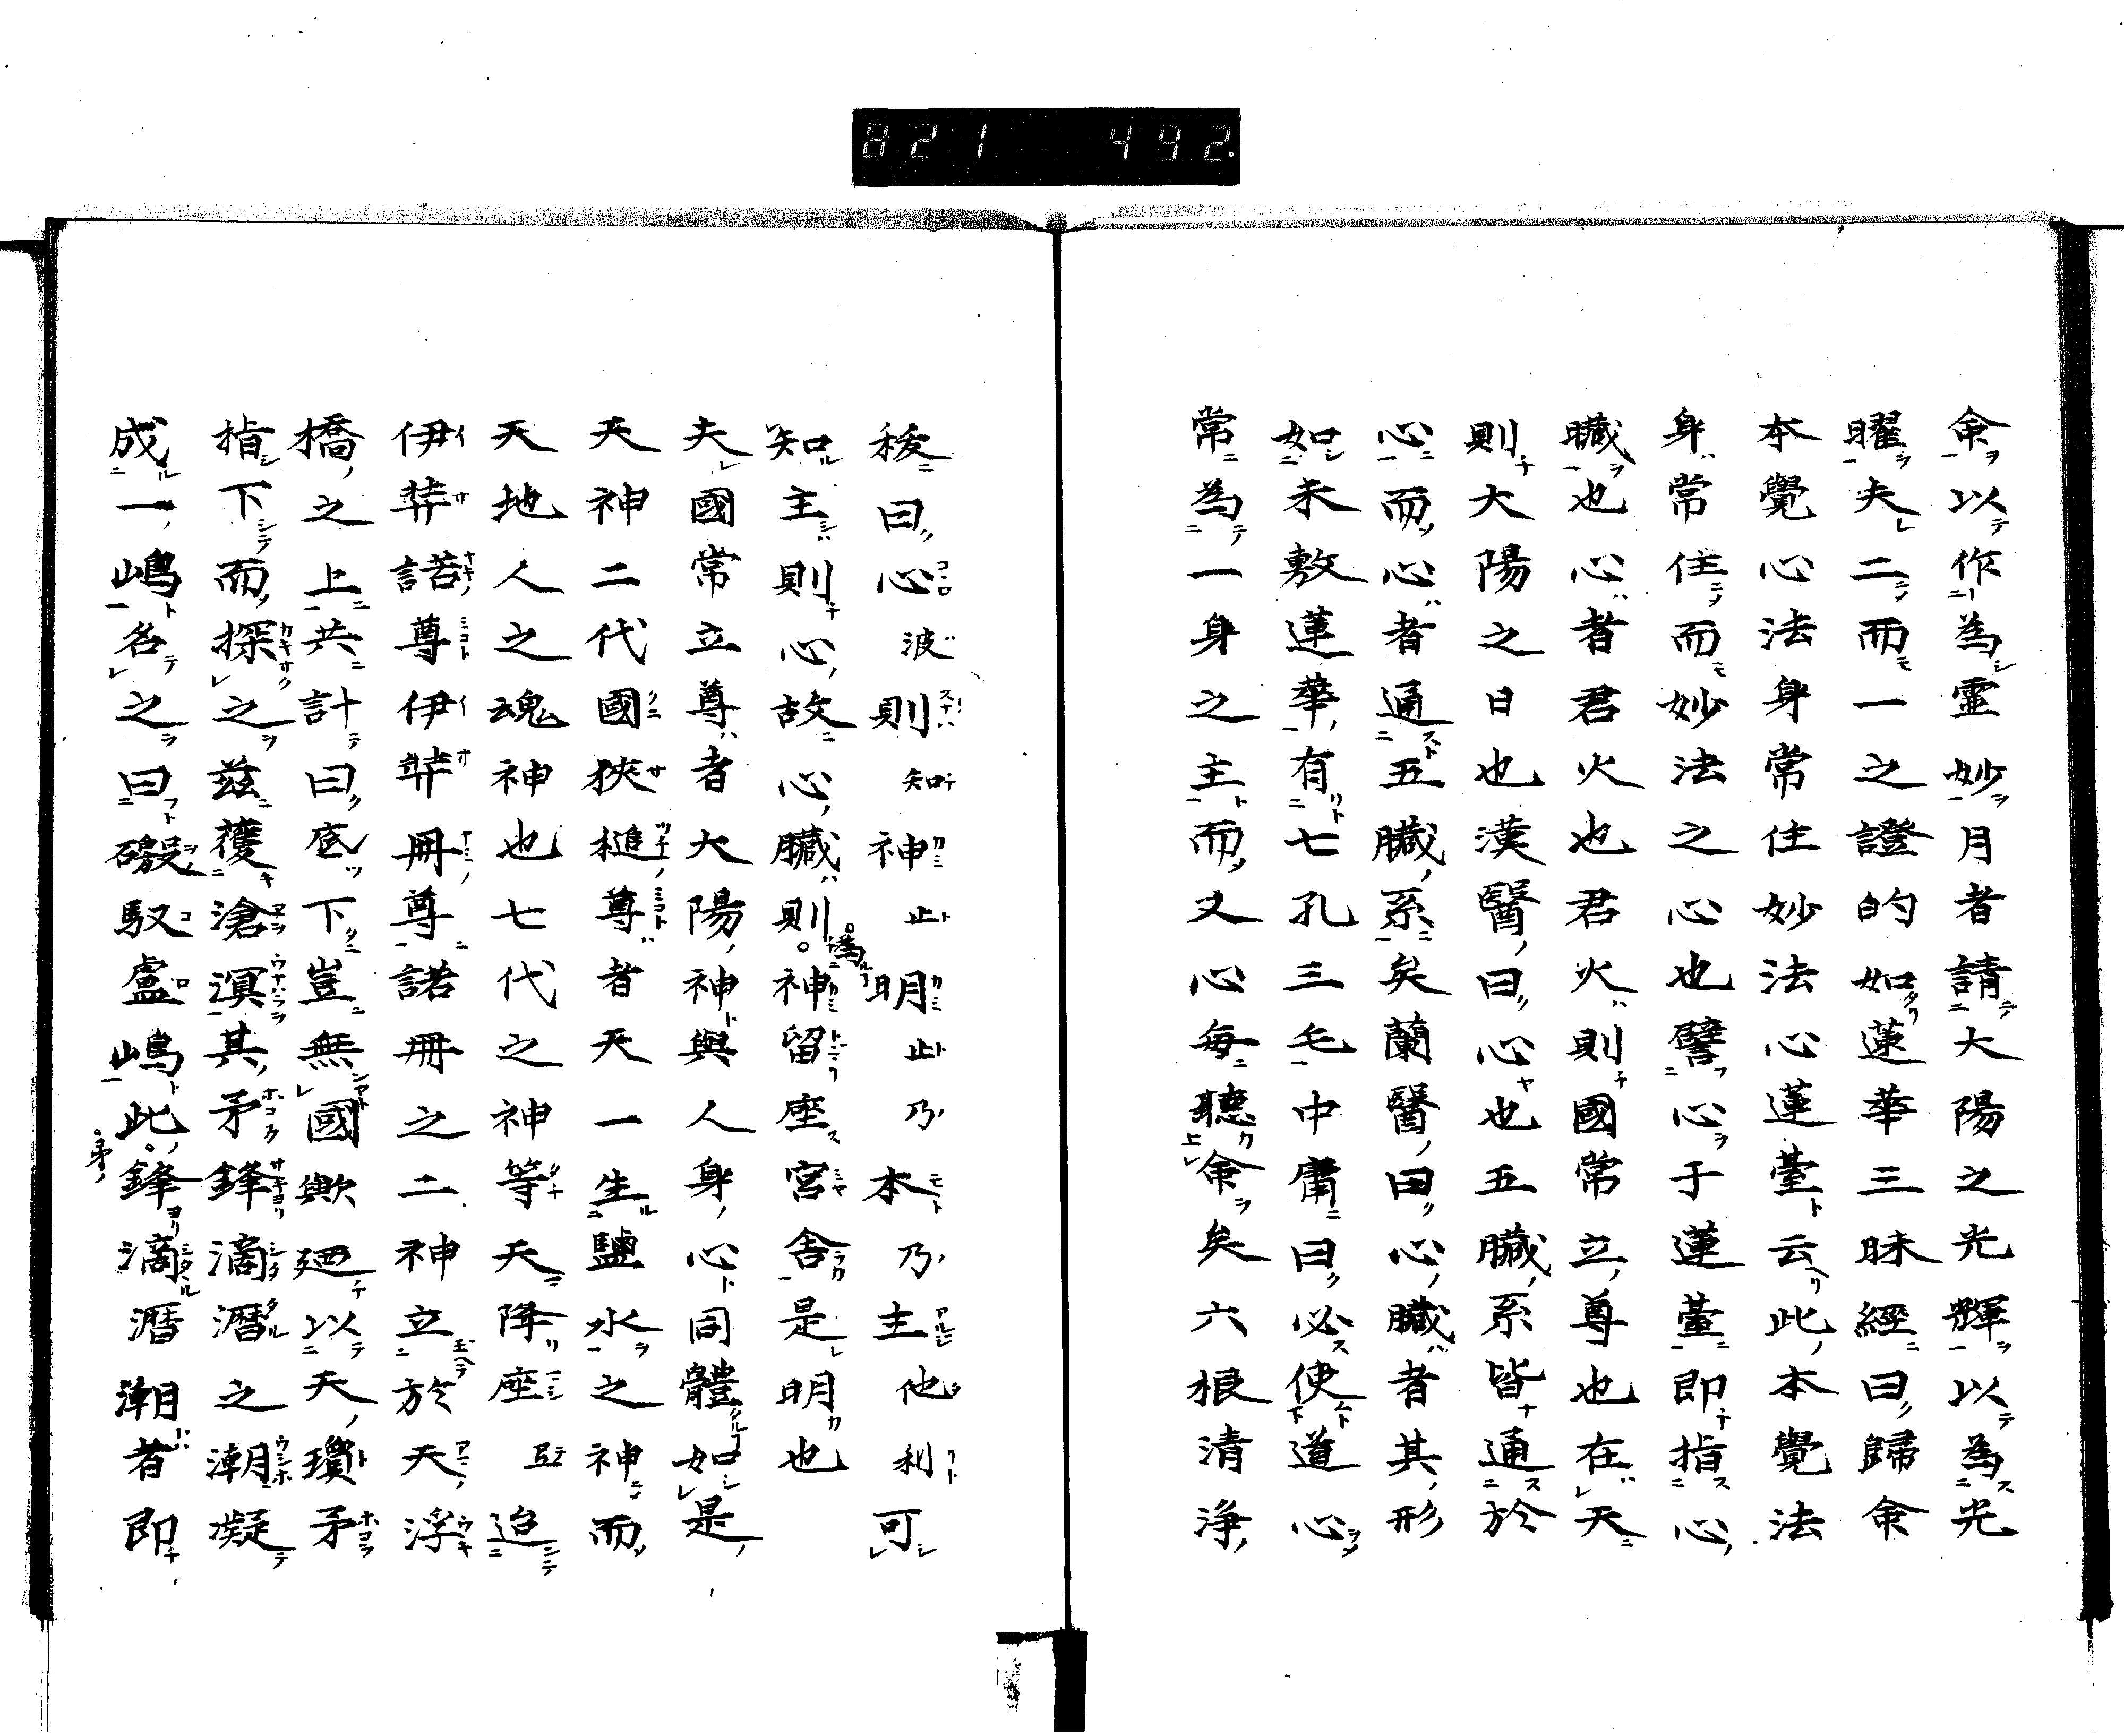 821 492
命以作為靈妙月者請大陽之光輝以為光
曜夫二而一之證的如蓮華三昧經曰歸命
本覺心法身常住妙法心蓮臺云此本覺法
身常住而妙法之心也譬心于蓮臺即指心
臓也心者君火也君火則國常立尊也在天
則大陽之日也漢醫曰心也五臓系皆通於
心而心者通五臓系矣蘭醫曰心臓者其形
如未敷蓮華有七孔三毛中庸曰必使道心
常為一身之主而丈心每聽命矣六根清浄
秡曰心波則知神止明止乃本乃主他利可
知主則心故心臓則為神留座宮舎是明也
夫國常立尊者大陽神與人身心同體如是
天神二代國狹槌尊者天一生鹽水之神而
天地人之魂神也七代之神等天降座㠯迨
伊弉諾尊伊弉冊尊諾冊之二神立於天浮
橋之上共計曰底下豈無國歟廼以天瓊矛
指下而探之茲獲滄溟其矛鋒滴瀝之潮凝
成一嶋名之曰磤馭盧嶋此矛鋒滴瀝潮者即